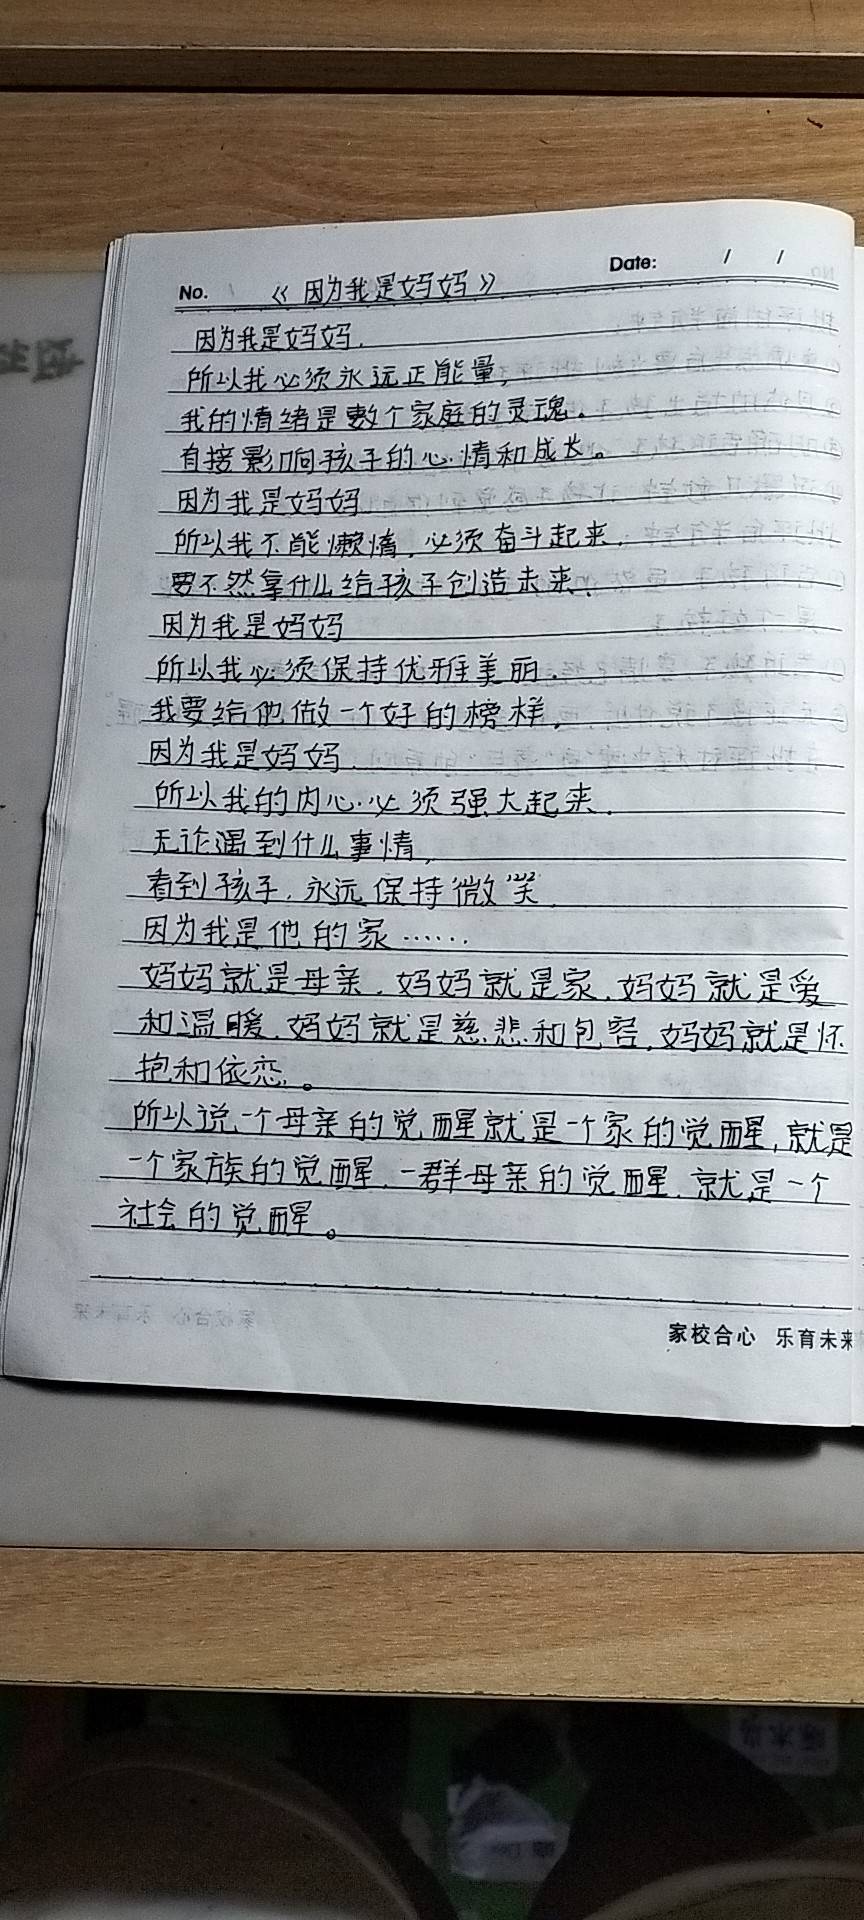 No. 《因为我是妈妈》 Date: / /
因为我是妈妈.
所以我必须永远正能量,
我的情绪是整个家庭的灵魂。
直接影响孩子的心情和成长。
因为我是妈妈
所以我不能懒惰,必须奋斗起来.
要不然拿什么给孩子创造未来.
因为我是妈妈
所以我必须保持优雅美丽.
我要给他做一个好的榜样,
因为我是妈妈.
所以我的内心必须强大起来.
无论遇到什么事情,
看到孩子,永远保持微笑.
因为我是他的家……
妈妈就是母亲.妈妈就是家.妈妈就是爱
和温暖.妈妈就是慈悲和包容,妈妈就是怀
抱和依恋。
所以说一个母亲的觉醒就是一个家的觉醒,就是
一个家族的觉醒.一群母亲的觉醒.就是一个
社会的觉醒。
家校合心 乐育未来